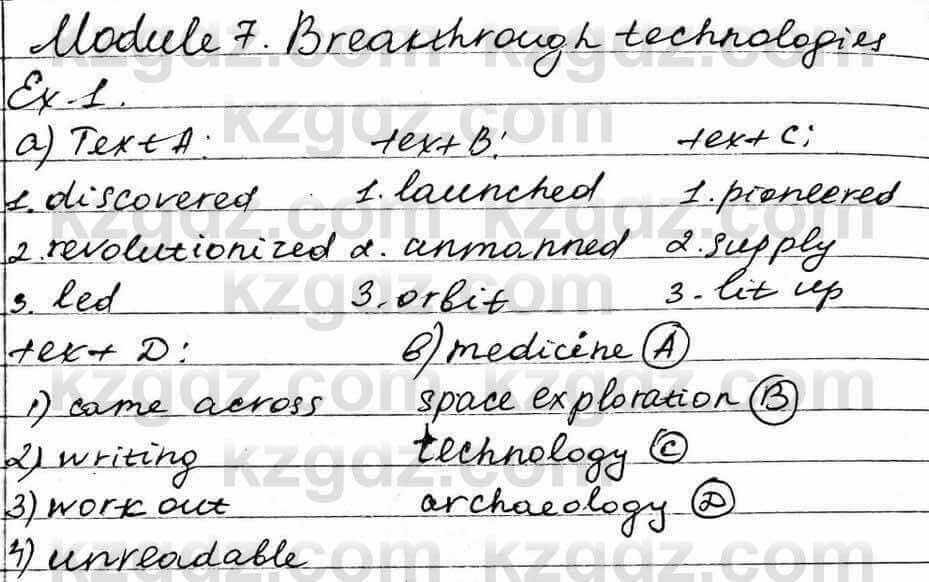 Module 7. Breakthrough technologies
Ex. 1.
a) Text A: text B: text C:
1. discovered 1. launched 1. pioneered
2. revolutionized 2. unmanned 2. supply
3. led 3. orbit 3. lit up
text D: в) medicine (A)
1) came across space exploration (B)
2) writing technology (C)
3) work out archaeology (D)
4) unreadable
kzgdz.com